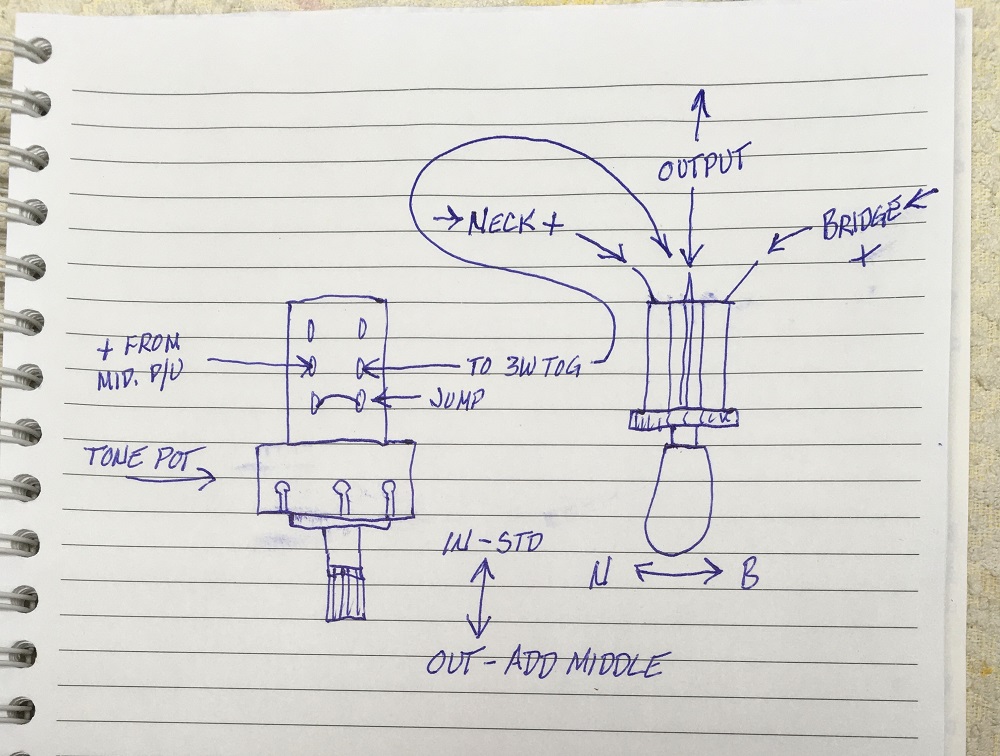 OUTPUT
→ NECK +
BRIDGE
+
+ FROM
MID. P/U
TO 3W TOG
JUMP
TONE POT
IN - STD
N ↔ B
OUT - ADD MIDDLE